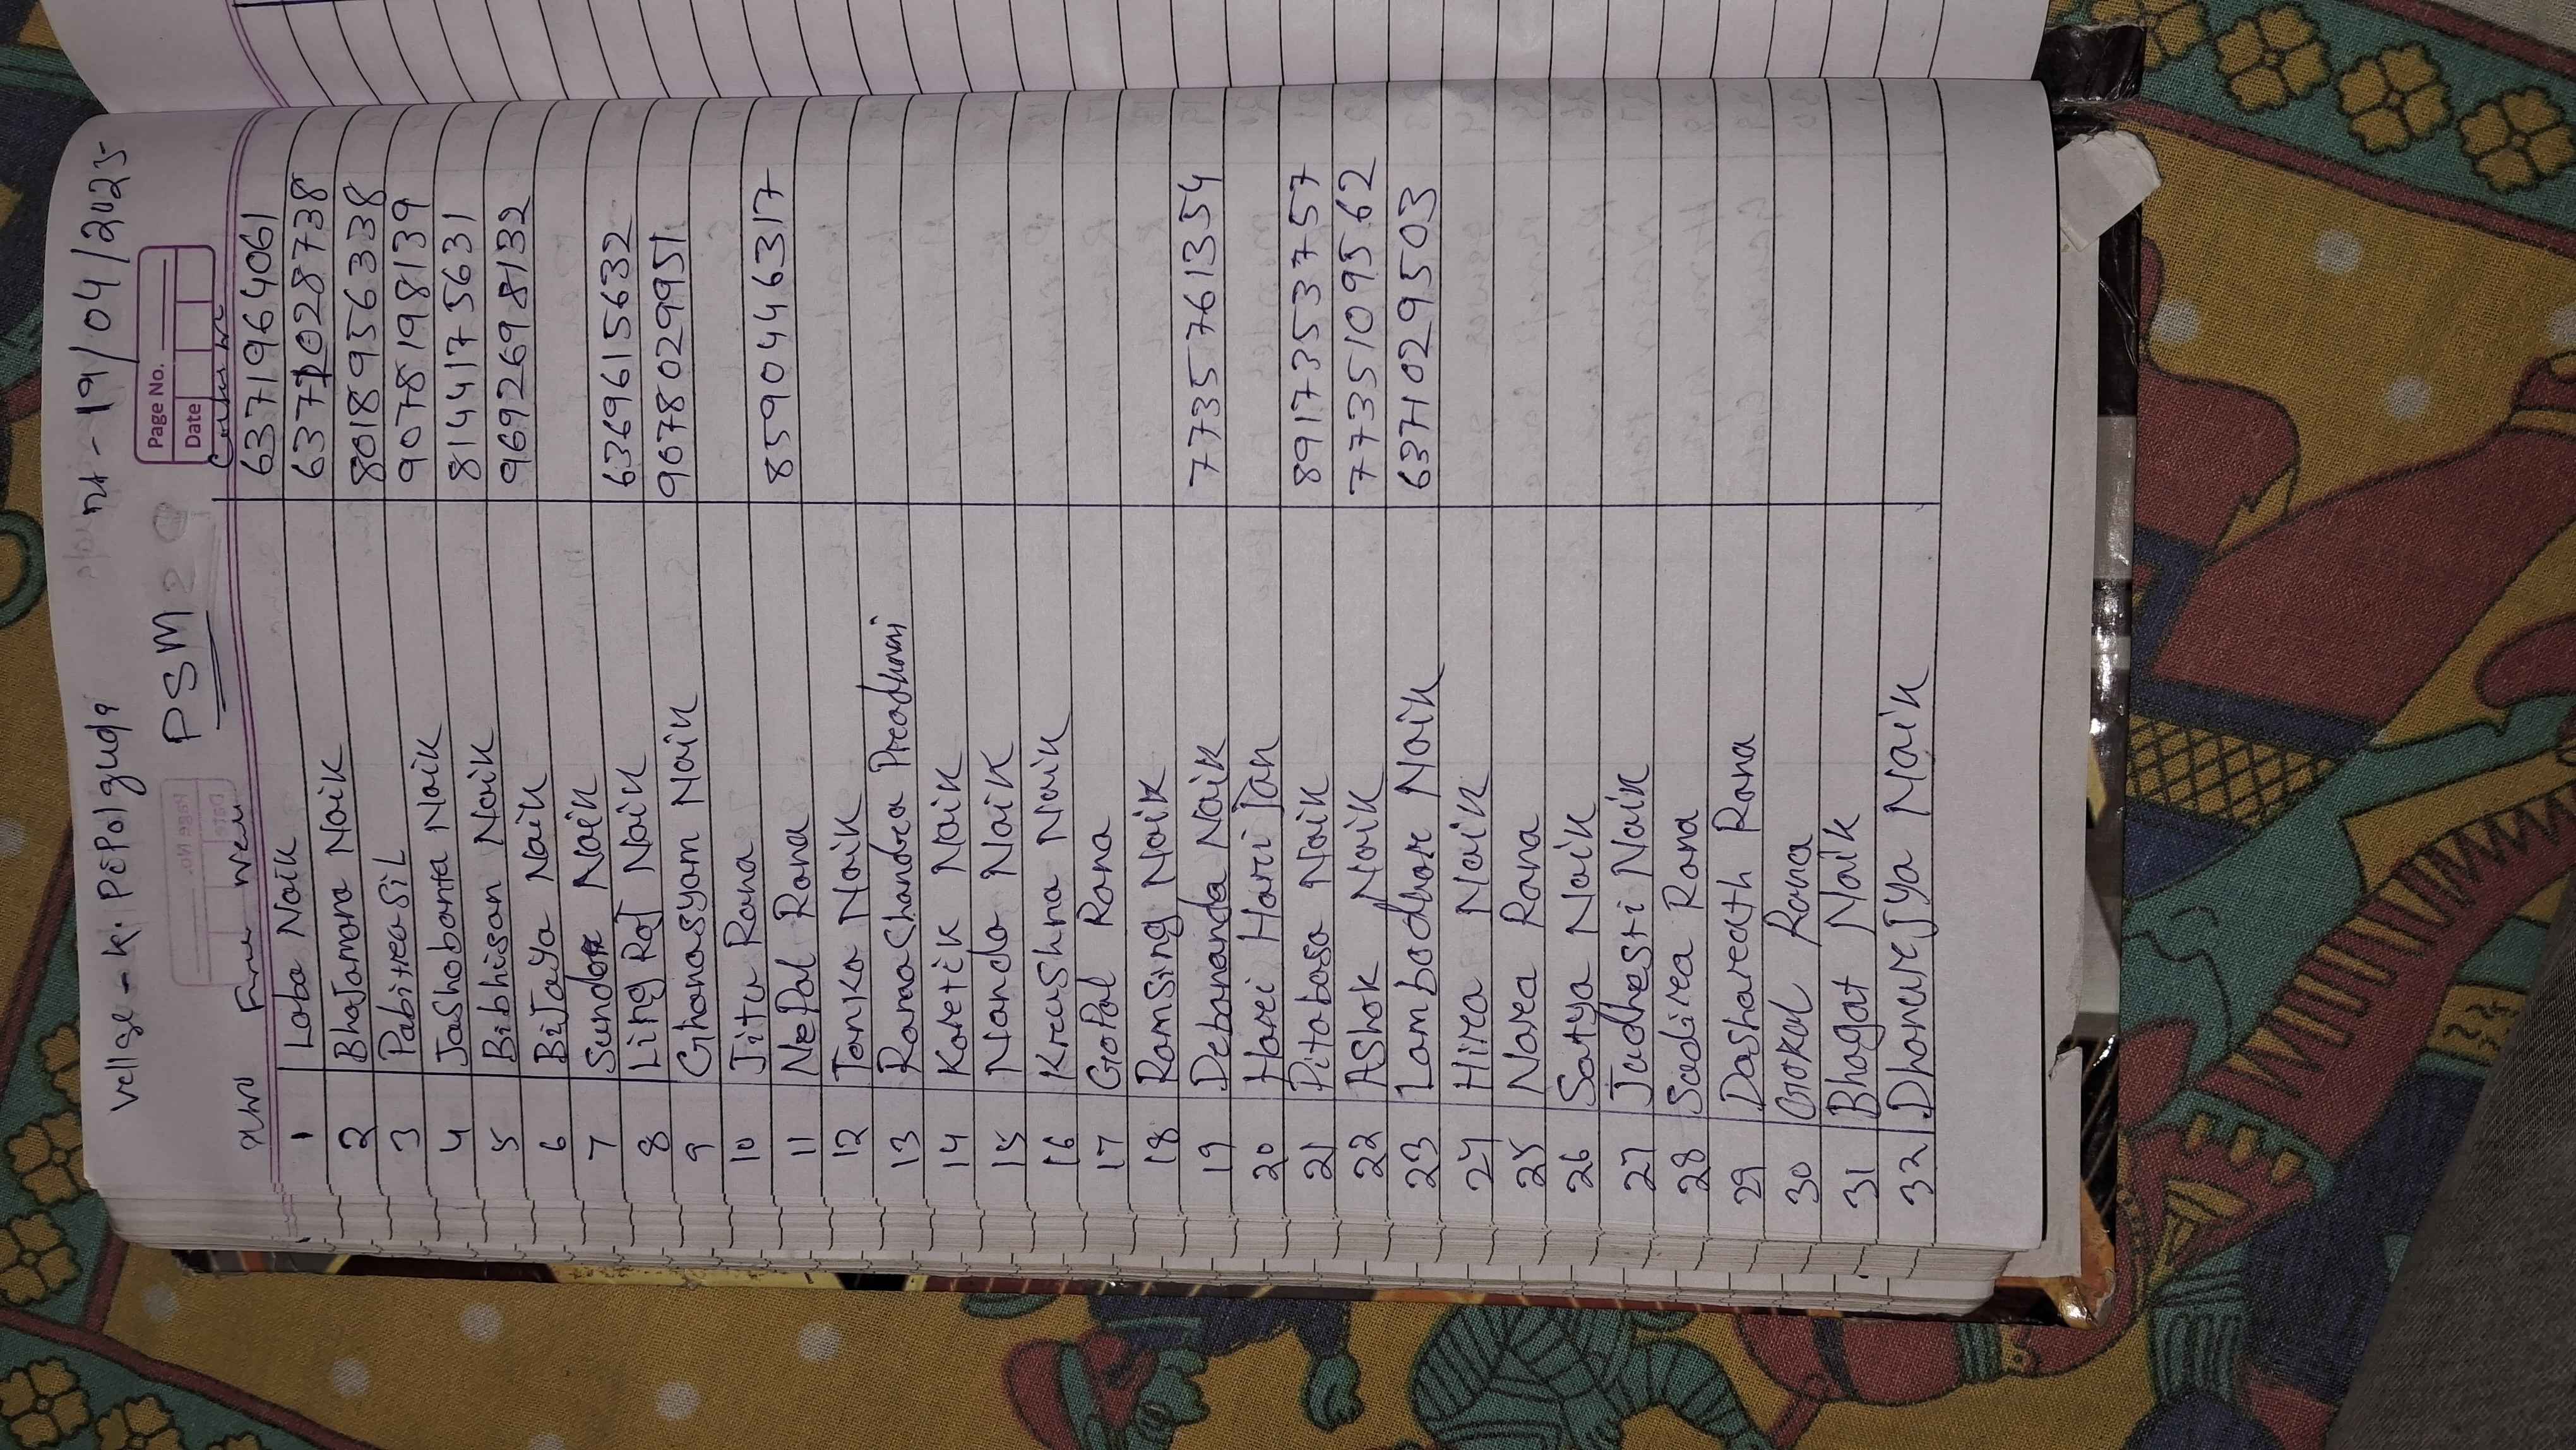 Village - K. Pipalgudi Dt - 19/04/2025
Page No.
Date
PSM
Contact
1 Laba Naik 6371964061
2 BhaJamana Naik 6371028738
3 Pabitra Sil 8018956338
4 Jashobanta Naik 9078198139
5 Bibhisan Naik 8144175631
6 BiJaya Naik 9692698132
7 Sundar Naik
8 Ling RaJ Naik 6369615632
9 Ghanasyam Naik 9078029951
10 Jitu Rana
11 NePal Rana 8590446317
12 Tanka Naik
13 Rama Chandra Pradhani
14 Karetik Naik
15 Nanda Naik
16 Krushna Naik
17 GoPal Rana
18 Ramsing Naik
19 Debananda Naik 7735761354
20 Hari HariJan
21 Pitabasa Naik 8917353757
22 Ashok Naik 7735109562
23 Lambodhar Naik 6371029503
24 Hira Naik
25 Nara Rana
26 Satya Naik
27 Judhesti Naik
28 Sadira Rana
29 Dasharath Rana
30 Gokul Rana
31 Bhagat Naik
32 DhanurJya Naik